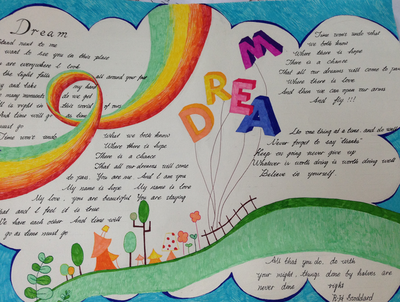 Dream
Stand next to me
want to see you in this place
are everywhere I look
the light falls all around your face
and take my hand
many moments do we get
is right in this world of ours
And time will go as time
must go
Time won't undo
What we both know
Where there is hope
There is a chance
That all our dreams will come
to pass You are me And I am you
My name is hope My name is love
My love, you are beautiful You are staying
and I feel it is true
We have each other And time will
go as time must go
DREAM
Time won't undo what
we both know
Where there is hope
There is a chance
That all our dreams will come to pass
Where there is love
And then we can open our arms
And fly!!!
Do one thing at a time, and do well
Never forget to say "thanks"
Keep on going never give up
Whatever is worth doing is worth doing well
Believe in yourself.
All that you do, do with
your might, things done by halves are
never done right
R.H. Stoddard